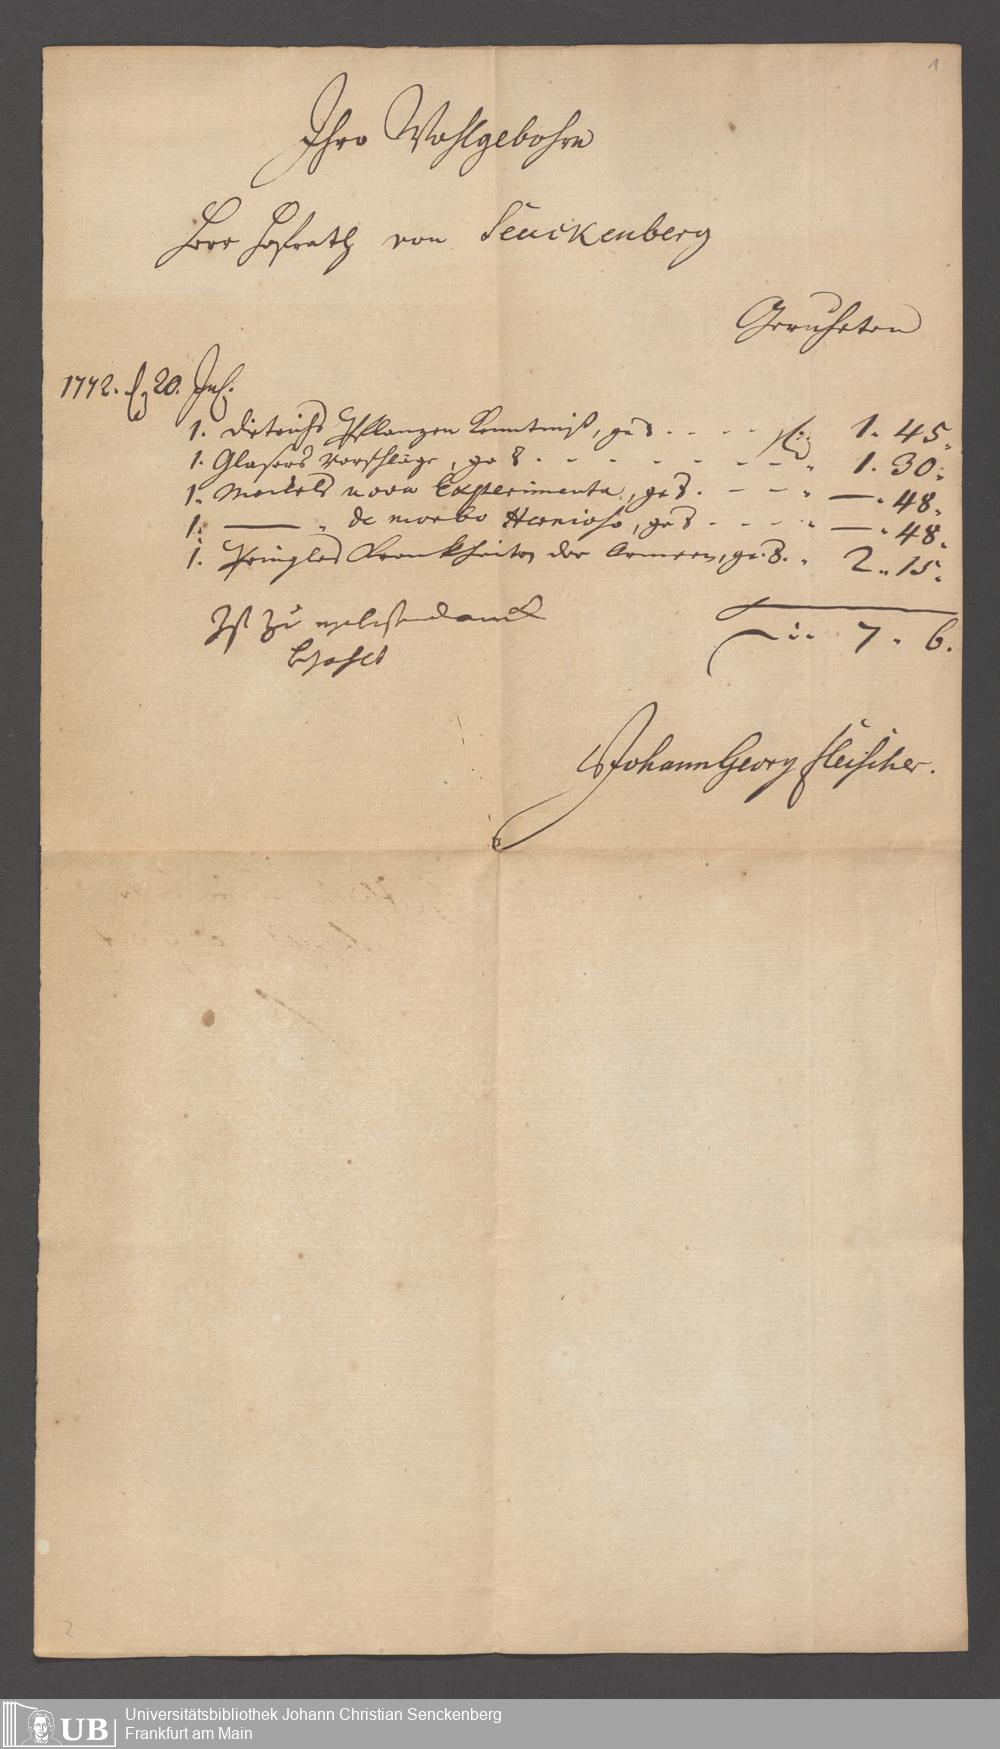 1
Ihro Wohlgebohrn
Herr Hofrath von Senckenberg
Geruheten
1772. d. 20. Jul.
1. Dietrichs Pflanzen Kenntniß, geb . . . . fl: 1. 45.
1. Glasers Vorschläge, geb . - - - - - - - " 1. 30.
1. Meckels nova Experimenta, geb. - - " — " 48.
1. ——— " de morbo Hernioso, geb - - - " — " 48.
1. Pringles Krankheiten der Armeen, geb. " 2 " 15.
7 . 6.
Ist zu danck
bezahlt
Johann Georg Fleischer.
2
UB
Universitätsbibliothek Johann Christian Senckenberg
Frankfurt am Main